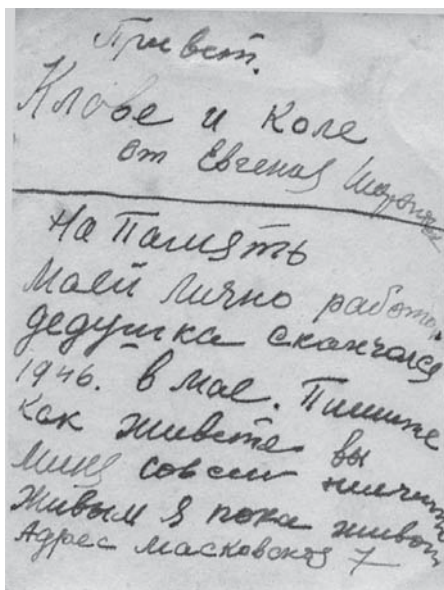 Привет.
Клаве и Коле
от Евгения
На Память
Маей Лично работы
дедушка скончался
1946. в мае. Пишите
как живете вы
миня совсем
живым я пока живой
Адрес Масковская 7